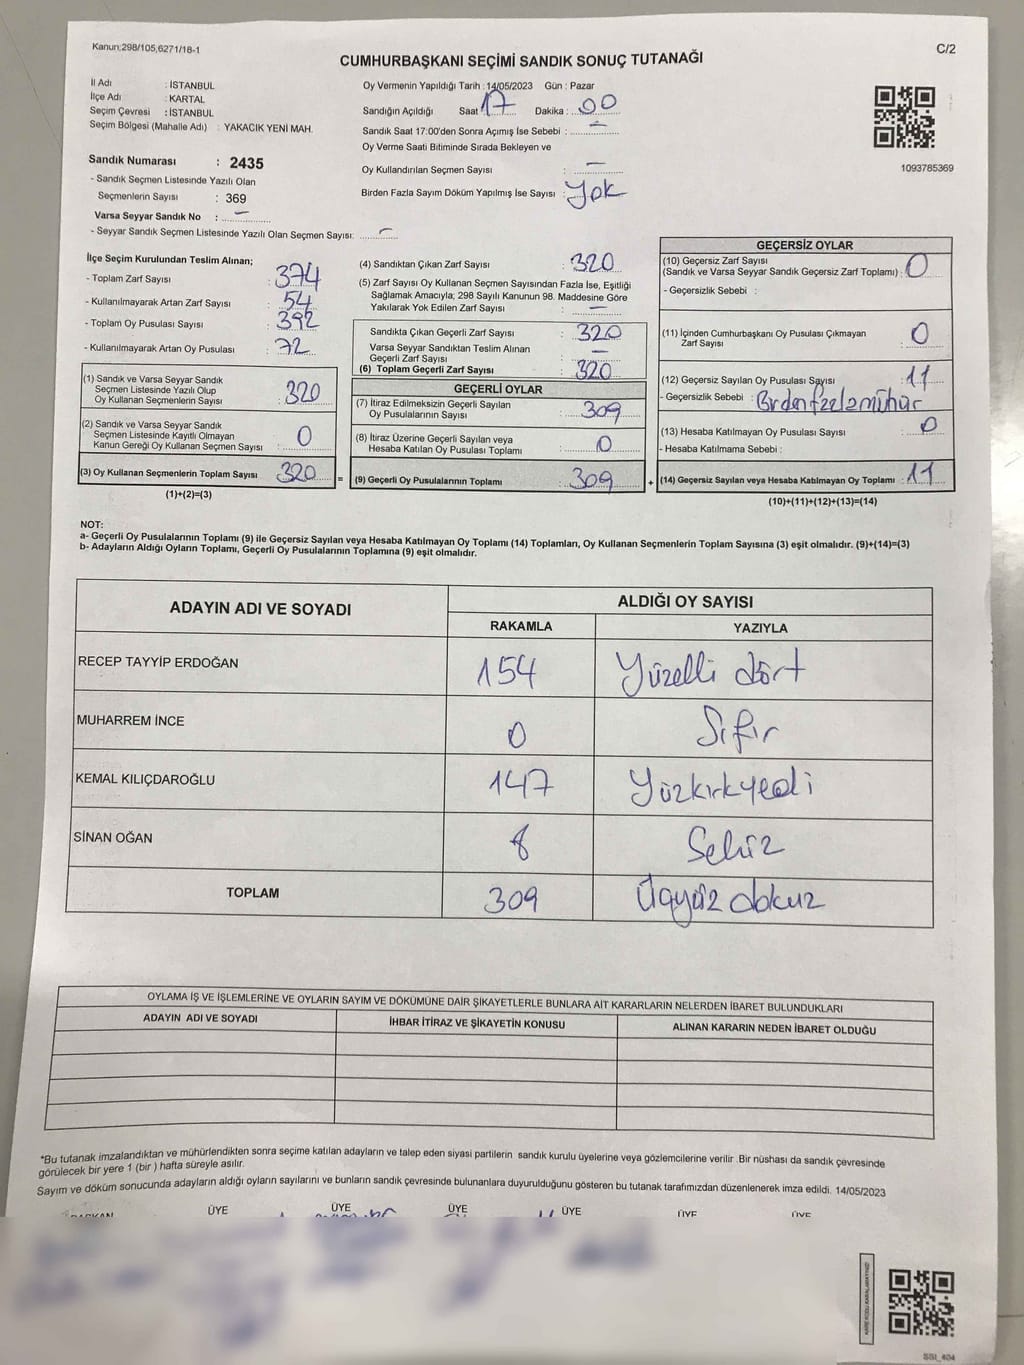 Kanun;298/105,6271/18-1
C/2
CUMHURBAŞKANI SEÇİMİ SANDIK SONUÇ TUTANAĞI
İl Adı : İSTANBUL
İlçe Adı : KARTAL
Seçim Çevresi : İSTANBUL
Seçim Bölgesi (Mahalle Adı) : YAKACIK YENİ MAH.
Sandık Numarası : 2435
- Sandık Seçmen Listesinde Yazılı Olan
Seçmenlerin Sayısı : 369
Varsa Seyyar Sandık No : –
- Seyyar Sandık Seçmen Listesinde Yazılı Olan Seçmen Sayısı: –
Oy Vermenin Yapıldığı Tarih : 14/05/2023 Gün : Pazar
Sandığın Açıldığı Saat : 17 Dakika : 00
Sandık Saat 17:00'den Sonra Açımış İse Sebebi : –
Oy Verme Saati Bitiminde Sırada Bekleyen ve
Oy Kullandırılan Seçmen Sayısı : –
Birden Fazla Sayım Döküm Yapılmış İse Sayısı : Yok
1093785369
İlçe Seçim Kurulundan Teslim Alınan;
- Toplam Zarf Sayısı : 374
- Kullanılmayarak Artan Zarf Sayısı : 54
- Toplam Oy Pusulası Sayısı : 392
- Kullanılmayarak Artan Oy Pusulası : 72
(1) Sandık ve Varsa Seyyar Sandık
Seçmen Listesinde Yazılı Olup
Oy Kullanan Seçmenlerin Sayısı : 320
(2) Sandık ve Varsa Seyyar Sandık
Seçmen Listesinde Kayıtlı Olmayan
Kanun Gereği Oy Kullanan Seçmen Sayısı : 0
(3) Oy Kullanan Seçmenlerin Toplam Sayısı : 320 =
(1)+(2)=(3)
(4) Sandıktan Çıkan Zarf Sayısı : 320
(5) Zarf Sayısı Oy Kullanan Seçmen Sayısından Fazla İse, Eşitliği
Sağlamak Amacıyla; 298 Sayılı Kanunun 98. Maddesine Göre
Yakılarak Yok Edilen Zarf Sayısı : –
Sandıkta Çıkan Geçerli Zarf Sayısı : 320
Varsa Seyyar Sandıktan Teslim Alınan
Geçerli Zarf Sayısı : –
(6) Toplam Geçerli Zarf Sayısı : 320
GEÇERLİ OYLAR
(7) İtiraz Edilmeksizin Geçerli Sayılan
Oy Pusulalarının Sayısı : 309
(8) İtiraz Üzerine Geçerli Sayılan veya
Hesaba Katılan Oy Pusulası Toplamı : 0
(9) Geçerli Oy Pusulalarının Toplamı : 309 +
GEÇERSİZ OYLAR
(10) Geçersiz Zarf Sayısı
(Sandık ve Varsa Seyyar Sandık Geçersiz Zarf Toplamı) : 0
- Geçersizlik Sebebi :
(11) İçinden Cumhurbaşkanı Oy Pusulası Çıkmayan
Zarf Sayısı : 0
(12) Geçersiz Sayılan Oy Pusulası Sayısı : 11
- Geçersizlik Sebebi : Birden fazla mühür
(13) Hesaba Katılmayan Oy Pusulası Sayısı : 0
- Hesaba Katılmama Sebebi :
(14) Geçersiz Sayılan veya Hesaba Katılmayan Oy Toplamı : 11
(10)+(11)+(12)+(13)=(14)
NOT:
a- Geçerli Oy Pusulalarının Toplamı (9) ile Geçersiz Sayılan veya Hesaba Katılmayan Oy Toplamı (14) Toplamları, Oy Kullanan Seçmenlerin Toplam Sayısına (3) eşit olmalıdır. (9)+(14)=(3)
b- Adayların Aldığı Oyların Toplamı, Geçerli Oy Pusulalarının Toplamına (9) eşit olmalıdır.
ADAYIN ADI VE SOYADI ALDIĞI OY SAYISI
RAKAMLA YAZIYLA
RECEP TAYYİP ERDOĞAN 154 Yüzelli dört
MUHARREM İNCE 0 Sıfır
KEMAL KILIÇDAROĞLU 147 Yüzkırkyedi
SİNAN OĞAN 8 Sekiz
TOPLAM 309 Üçyüz dokuz
OYLAMA İŞ VE İŞLEMLERİNE VE OYLARIN SAYIM VE DÖKÜMÜNE DAİR ŞİKAYETLERLE BUNLARA AİT KARARLARIN NELERDEN İBARET BULUNDUKLARI
ADAYIN ADI VE SOYADI İHBAR İTİRAZ VE ŞİKAYETİN KONUSU ALINAN KARARIN NEDEN İBARET OLDUĞU
*Bu tutanak imzalandıktan ve mühürlendikten sonra seçime katılan adayların ve talep eden siyasi partilerin sandık kurulu üyelerine veya gözlemcilerine verilir .Bir nüshası da sandık çevresinde
görülecek bir yere 1 (bir ) hafta süreyle asılır.
Sayım ve döküm sonucunda adayların aldığı oyların sayılarını ve bunların sandık çevresinde bulunanlara duyurulduğunu gösteren bu tutanak tarafımızdan düzenlenerek imza edildi. 14/05/2023
BAŞKAN ÜYE ÜYE ÜYE ÜYE ÜYE ÜYE
SSI_404